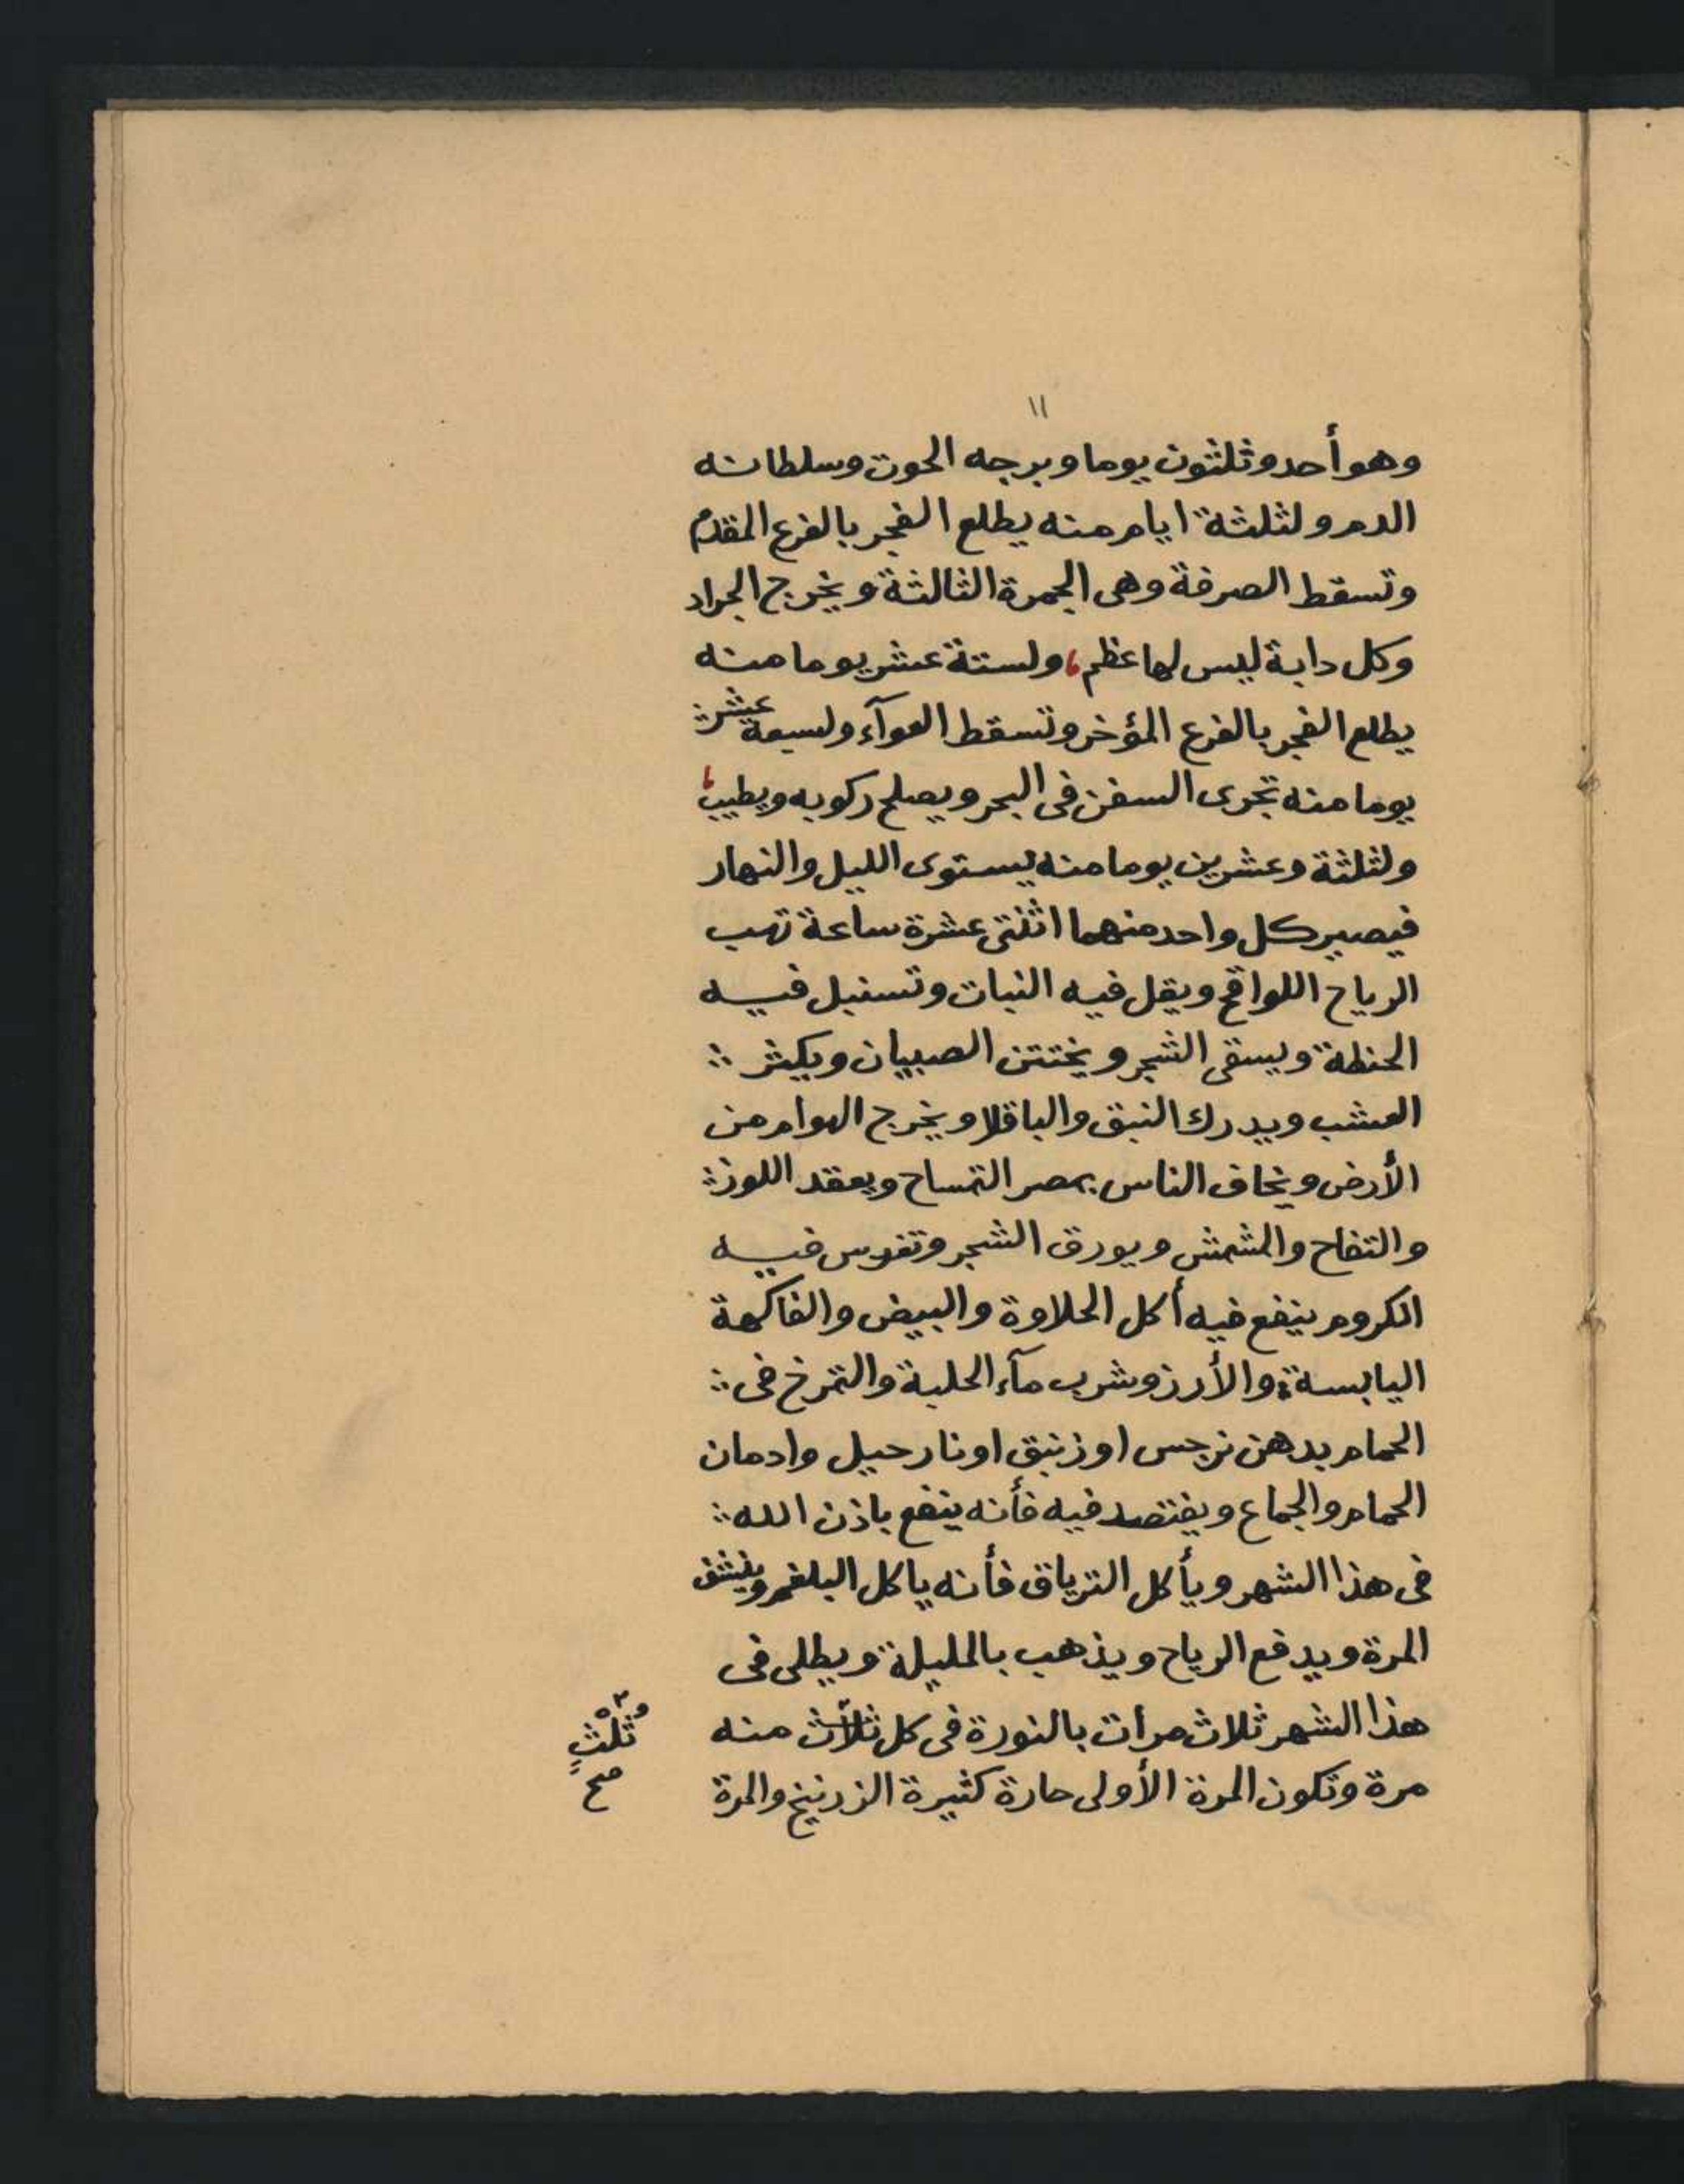 ١١
وهو أحد وثلثون يوما وبرجه الحوت وسلطانه
الدم ولثلثة ايام منه يطلع الفجر بالفرع المقدم
وتسقط الصرفة وهى الجمرة الثالثة ويخرج الجراد
وكل دابة ليس لها عظم، ولستة عشر يوما منه
يطلع الفجر بالفرع المؤخر وتسقط العوآء ولسبعة عشر
يوما منه تجرى السفن فى البحر ويصلح ركوبه ويطيب
ولثلثة وعشرين يوما منه يستوى الليل والنهار
فيصير كل واحد منهما اثنتى عشرة ساعة تهب
الرياح اللواقح ويقل فيه النبات وتسنبل فيه
الحنطة ويسقى الشجر ويختتن الصبيان ويكثر ؞
العشب ويدرك النبق والباقلا ويخرج الهوام من
الأرض ويخاف الناس بمصر التمساح ويعقد اللوز ؞
والتفاح والمشمش ويورق الشجر وتغرس فيه
الكروم ينفع فيه أكل الحلاوة والبيض والفاكهة
اليابسة والأرز وشرب مآء الحلبة والتمرخ فى ؞
الحمام بدهن نرجس او زنبق او نارجيل وادمان
الحمام والجماع ويفتصد فيه فأنه ينفع باذن الله ؞
فى هذا الشهر ويأكل الترياق فأنه ياكل البلغم وينشف
المرة ويدفع الرياح ويذهب بالمليلة ويطلى فى
هذا الشهر ثلاث مرات بالنورة فى كل ثلاث منه
ثُلُثٍ
صح
مرة وتكون المرة الأولى حارة كثيرة الزرنيخ والمرة